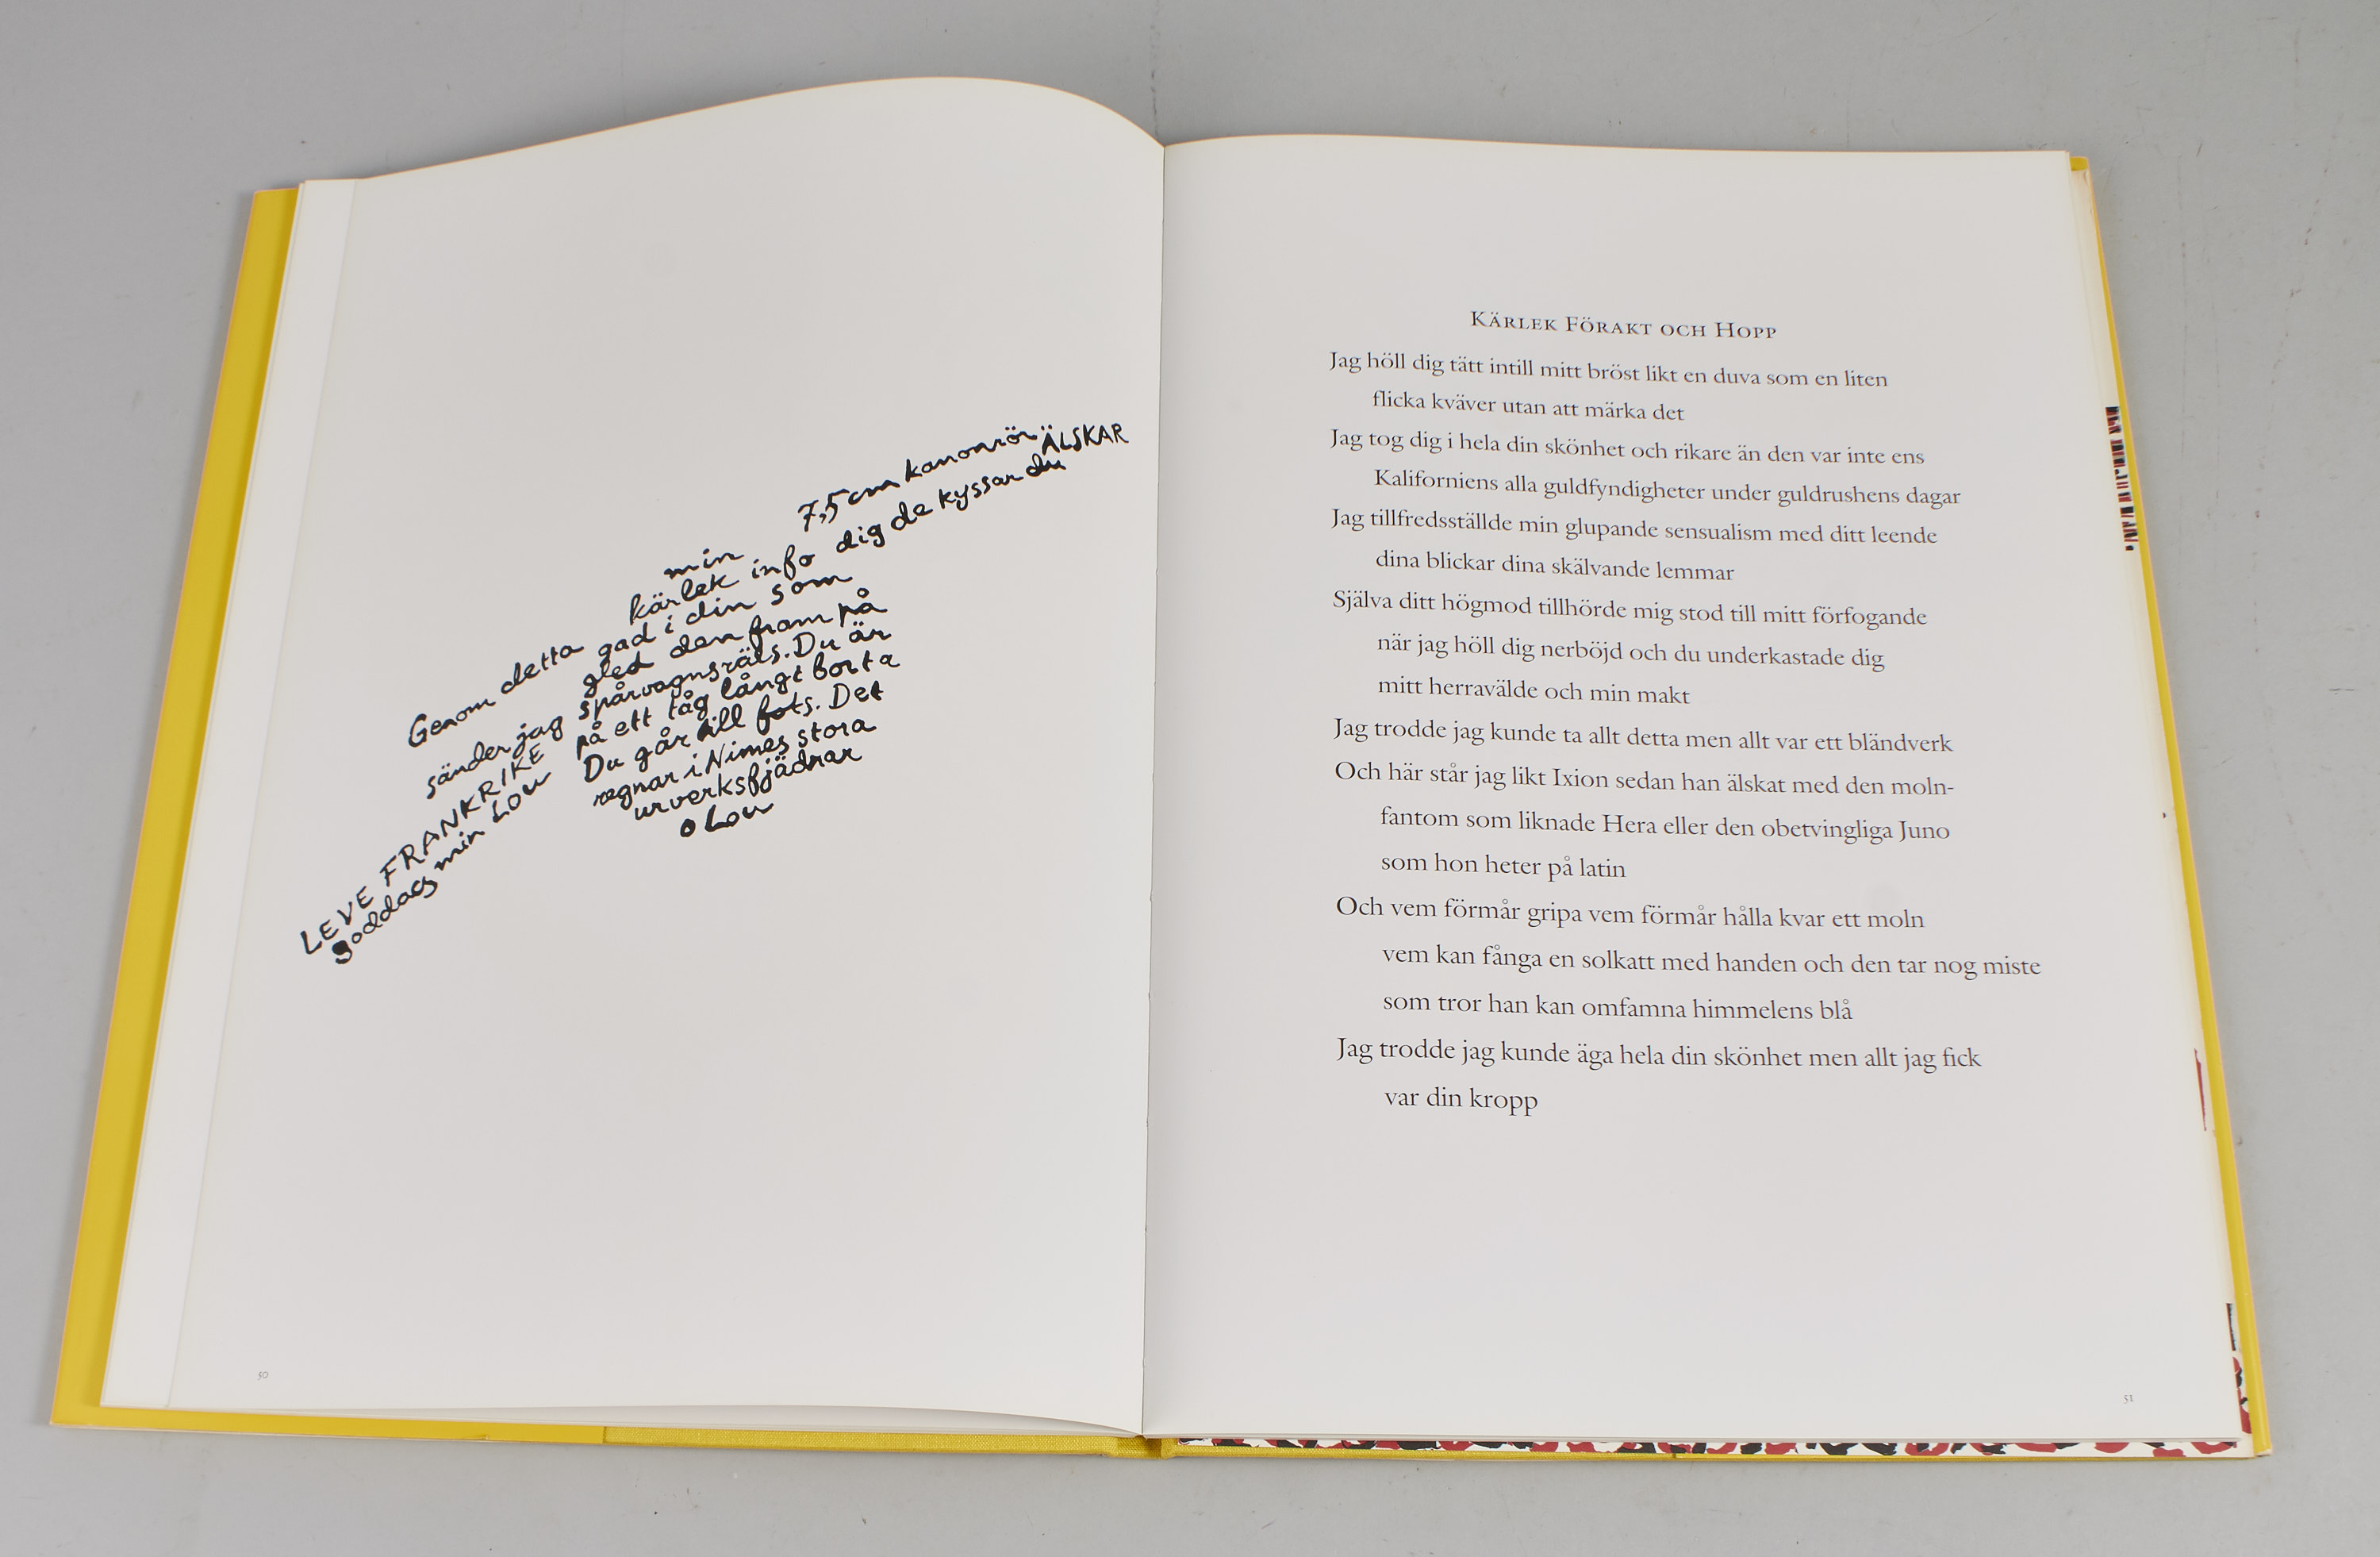 7,5 cm kanonrör ÄLSKAR
min
kärlek info dig de kyssar du
Genom detta gad i din som
gled den fram på
sänder jag spårvagnsräls. Du är
på ett tåg långt borta
Du går till fots. Det
regnar i Nimes stora
urverksfjädrar
o Lou
LEVE FRANKRIKE
goddag min Lou
50
KÄRLEK FÖRAKT OCH HOPP
Jag höll dig tätt intill mitt bröst likt en duva som en liten
flicka kväver utan att märka det
Jag tog dig i hela din skönhet och rikare än den var inte ens
Kaliforniens alla guldfyndigheter under guldrushens dagar
Jag tillfredsställde min glupande sensualism med ditt leende
dina blickar dina skälvande lemmar
Själva ditt högmod tillhörde mig stod till mitt förfogande
när jag höll dig nerböjd och du underkastade dig
mitt herravälde och min makt
Jag trodde jag kunde ta allt detta men allt var ett bländverk
Och här står jag likt Ixion sedan han älskat med den moln-
fantom som liknade Hera eller den obetvingliga Juno
som hon heter på latin
Och vem förmår gripa vem förmår hålla kvar ett moln
vem kan fånga en solkatt med handen och den tar nog miste
som tror han kan omfamna himmelens blå
Jag trodde jag kunde äga hela din skönhet men allt jag fick
var din kropp
51